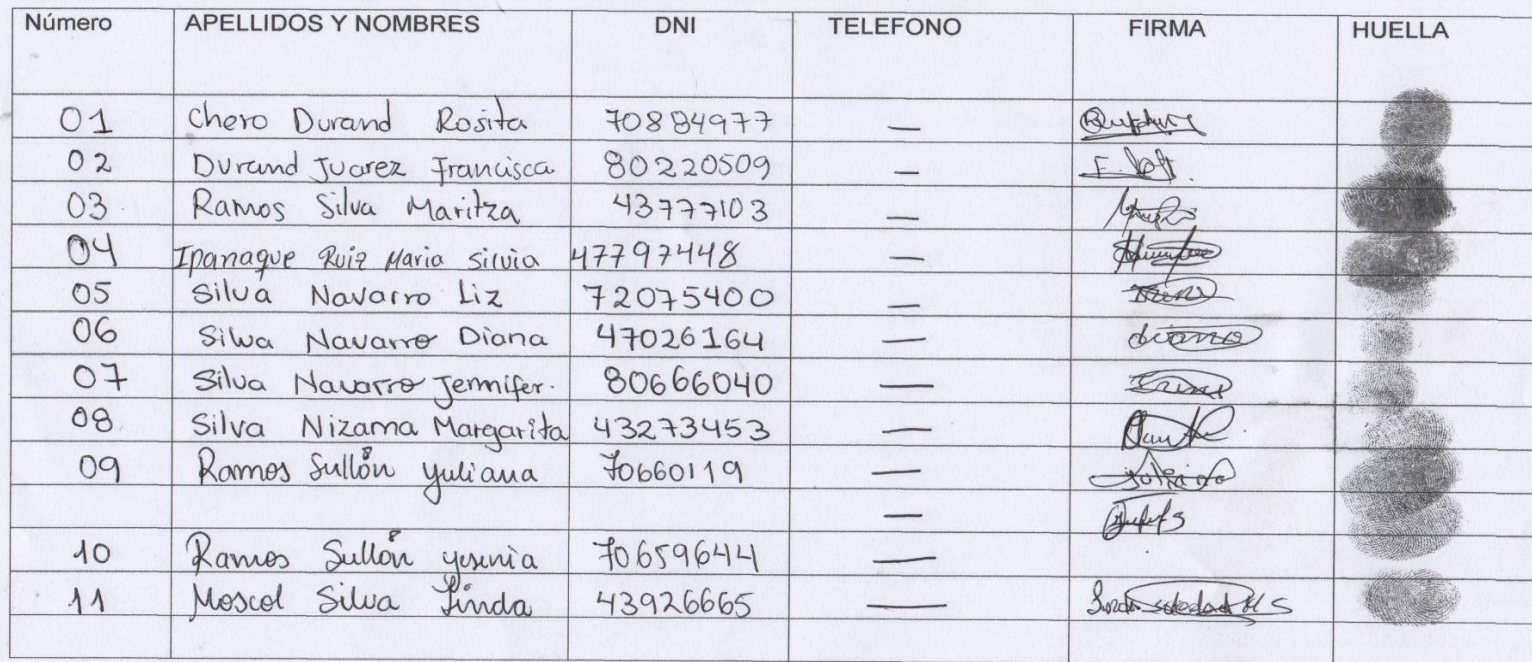 Número APELLIDOS Y NOMBRES DNI TELEFONO FIRMA HUELLA
01 Chero Durand Rosita 70884977 —
02 Durand Juarez Francisca 80220509 —
03 Ramos Silva Maritza 43777103 —
04 Ipanaque Ruiz Maria Silvia 47797448 —
05 Silva Navarro Liz 72075400 —
06 Silva Navarro Diana 47026164 — diana
07 Silva Navarro Jennifer. 80666040 —
08 Silva Nizama Margarita 43273453 —
09 Ramos Sullón yuliana 70660119 —
—
10 Ramos Sullón yesenia 70659644 —
11 Moscol Silva Linda 43926665 —